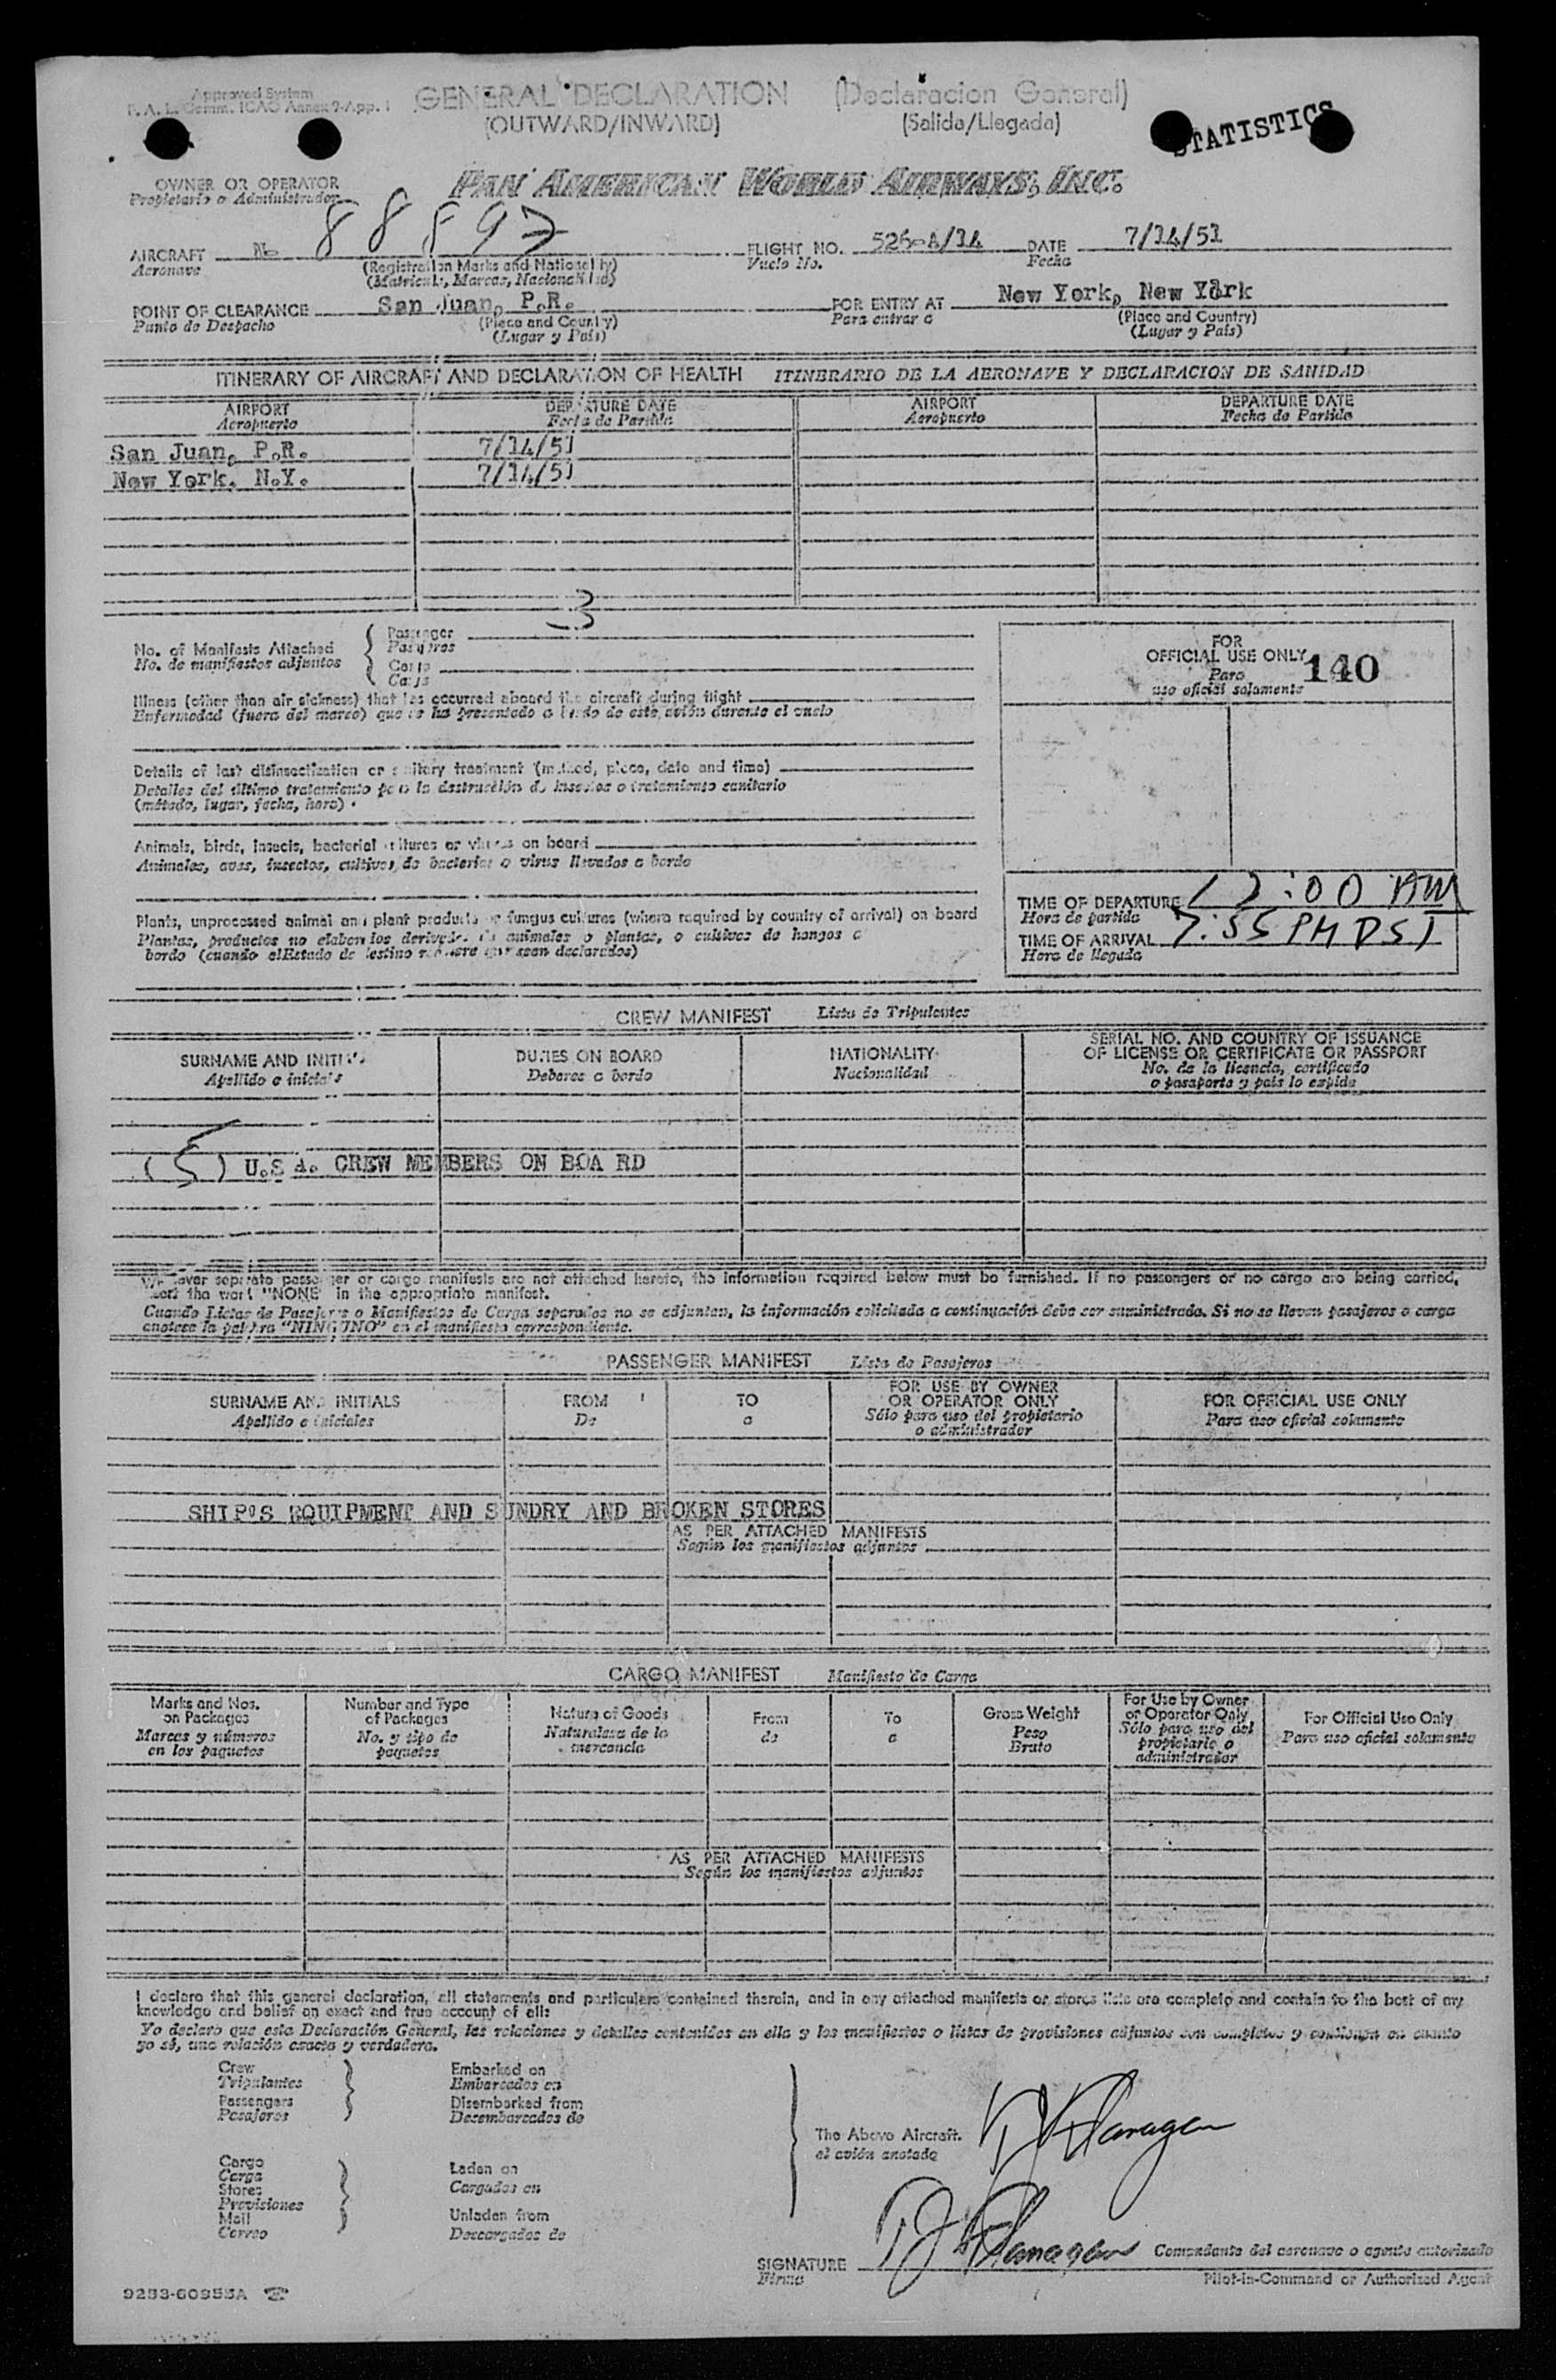 Approved System
F. A. L. Comm. ICAO Annex 9-App. 1
GENERAL DECLARATION (Declaracion General)
(OUTWARD/INWARD) (Salida/Llegada)
STATISTICS
OWNER OR OPERATOR
Propietario o Administrador
PAN AMERICAN WORLD AIRWAYS, INC.
AIRCRAFT N- 88897 FLIGHT NO. 526-A/14 DATE 7/14/51
Aeronave Vuelo No. Fecha
(Registration Marks and Nationality)
(Matricula, Marcas, Nacionalidad)
POINT OF CLEARANCE San Juan, P.R. FOR ENTRY AT New York, New York
Punto de Despacho (Place and Country) Para entrar a (Place and Country)
(Lugar y País) (Lugar y País)
ITINERARY OF AIRCRAFT AND DECLARATION OF HEALTH ITINERARIO DE LA AERONAVE Y DECLARACION DE SANIDAD
AIRPORT DEPARTURE DATE AIRPORT DEPARTURE DATE
Aeropuerto Fecha de Partida Aeropuerto Fecha de Partida
San Juan, P.R. 7/14/51
New York, N.Y. 7/14/51
3
No. of Manifests Attached { Passenger
No. de manifiestos adjuntos Pasajeros
Cargo
Carga
FOR
OFFICIAL USE ONLY 140
Para
uso oficial solamente
Illness (other than air sickness) that has occurred aboard the aircraft during flight
Enfermedad (fuera del mareo) que se ha presentado a bordo de este avión durante el vuelo
Details of last disinsectization or sanitary treatment (method, place, date and time)
Detalles del último tratamiento para la destrucción de insectos o tratamiento sanitario
(método, lugar, fecha, hora)
Animals, birds, insects, bacterial cultures or virus on board
Animales, aves, insectos, cultivos de bacterias o virus llevados a bordo
Plants, unprocessed animal and plant products or fungus cultures (where required by country of arrival) on board
Plantas, productos no elaborados derivados de animales o plantas, o cultivos de hongos a
bordo (cuando el Estado de destino requiere que sean declarados)
TIME OF DEPARTURE 12:00 AM
Hora de partida
TIME OF ARRIVAL 7:55 PM DST
Hora de llegada
CREW MANIFEST Lista de Tripulantes
SURNAME AND INITIALS DUTIES ON BOARD NATIONALITY SERIAL NO. AND COUNTRY OF ISSUANCE
OF LICENSE OR CERTIFICATE OR PASSPORT
Apellido e iniciales Deberes a bordo Nacionalidad No. de la licencia, certificado
o pasaporte y país lo expide
(5) U.S.A. CREW MEMBERS ON BOARD
Whenever separate passenger or cargo manifests are not attached hereto, the information required below must be furnished. If no passengers or no cargo are being carried,
insert the word "NONE" in the appropriate manifest.
Cuando Listas de Pasajeros o Manifiestos de Carga separados no se adjuntan, la información solicitada a continuación debe ser suministrada. Si no se llevan pasajeros o carga
anotese la palabra "NINGUNO" en el manifiesto correspondiente.
PASSENGER MANIFEST Lista de Pasajeros
SURNAME AND INITIALS FROM TO FOR USE BY OWNER
OR OPERATOR ONLY FOR OFFICIAL USE ONLY
Apellido e iniciales De a Sólo para uso del propietario
o administrador Para uso oficial solamente
SHIP'S EQUIPMENT AND SUNDRY AND BROKEN STORES
AS PER ATTACHED MANIFESTS
Según los manifiestos adjuntos
CARGO MANIFEST Manifiesto de Carga
Marks and Nos.
on Packages
Marcas y números
en los paquetes
Number and Type
of Packages
No. y tipo de
paquetes
Nature of Goods
Naturaleza de la
mercancía
From
de
To
a
Gross Weight
Peso
Bruto
For Use by Owner
or Operator Only
Sólo para uso del
propietario o
administrador
For Official Use Only
Para uso oficial solamente
AS PER ATTACHED MANIFESTS
Según los manifiestos adjuntos
I declare that this general declaration, all statements and particulars contained therein, and in any attached manifests or stores lists are complete and contain to the best of my
knowledge and belief an exact and true account of all:
Yo declaro que esta Declaración General, las relaciones y detalles contenidos en ella y los manifiestos o listas de provisiones adjuntos son completos y contienen en cuanto
yo sé, una relación exacta y verdadera.
Crew Embarked on
Tripulantes Embarcados en
Passengers Disembarked from
Pasajeros Desembarcados de
The Above Aircraft.
el avión anotado
TJ Flanagan
Cargo
Carga Laden on
Stores Cargados en
Provisiones
Mail Unladen from
Correo Descargados de
SIGNATURE TJ Flanagan Comandante del aeronave o agente autorizado
Firma Pilot-in-Command or Authorized Agent
9283-60955A